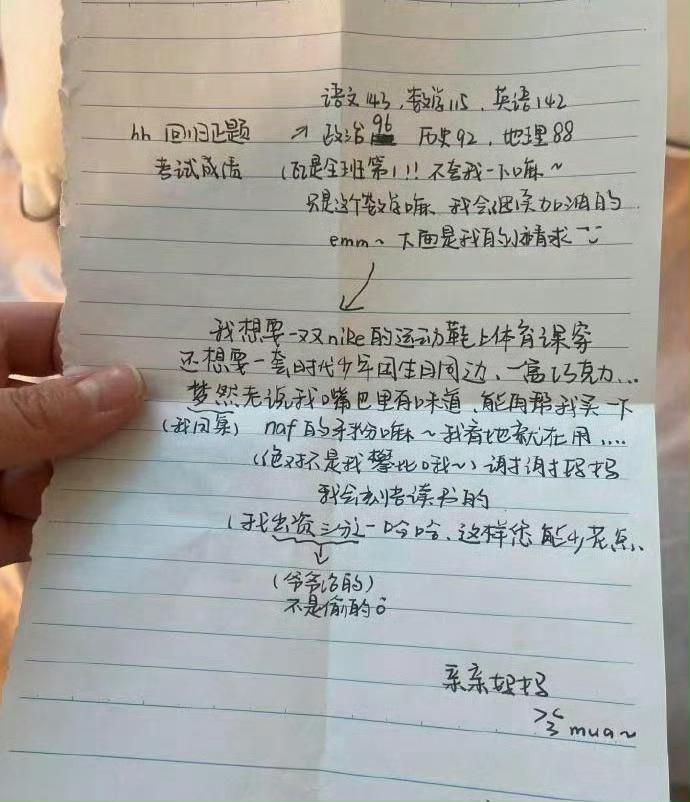 语文143，数学115，英语142
hh 回归正题 → 政治96 历史92，地理88
考试成质 (瓦是全班第1!! 不夸我一下嘛~
只是这个数学嘛、我会继续加油的
emm~ 下面是我的小请求
我想要一双nike的运动鞋上体育课穿
还想要一套时代少年团生日周边、一富巧克力...
梦然老说我嘴巴里有味道，能再帮我买一下
(我同桌) naf的牙粉嘛~我看她就在用....
(绝对不是我攀比哦~) 谢谢妈妈
我会刻苦读书的
(我出资三分之一哈哈、这样您能少花点、
(爷爷给的)
不是偷的ô
亲亲妈妈
mua~